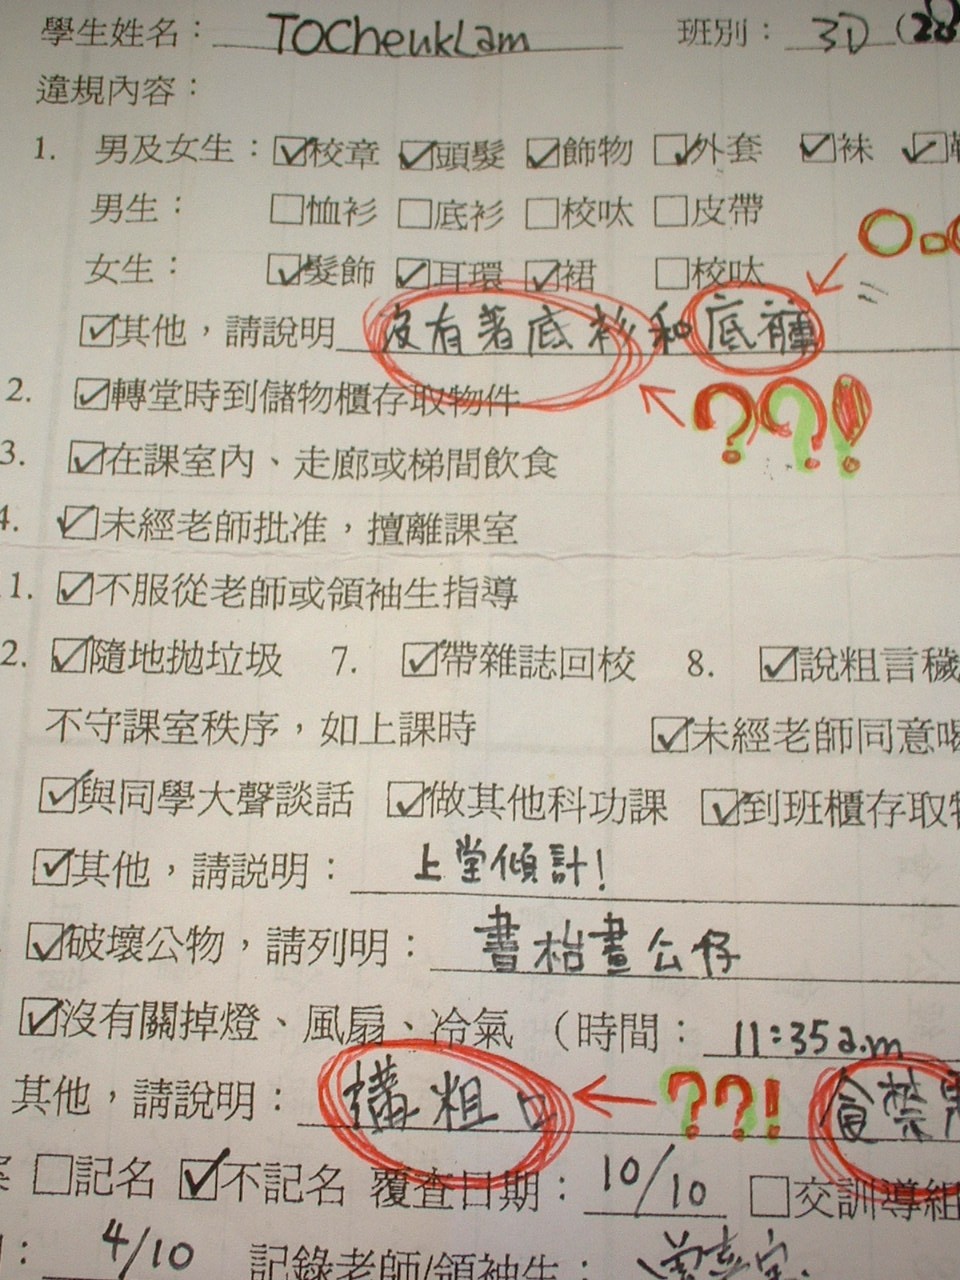 學生姓名：TOCheukLam 班別：3D (28
違規內容：
1. 男及女生：☑校章 ☑頭髮 ☑飾物 ☑外套 ☑袜 ☑
男生： □恤衫 □底衫 □校呔 □皮帶
女生： ☑髮飾 ☑耳環 ☑裙 □校呔
☑其他，請說明 沒有著底衫和底褲
??!
2. ☑轉堂時到儲物櫃存取物件
3. ☑在課室內、走廊或梯間飲食
4. ☑未經老師批准，擅離課室
1. ☑不服從老師或領袖生指導
2. ☑隨地拋垃圾 7. ☑帶雜誌回校 8. ☑說粗言穢
不守課室秩序，如上課時 ☑未經老師同意喝
☑與同學大聲談話 ☑做其他科功課 ☑到班櫃存取物
☑其他，請説明： 上堂傾計！
☑破壞公物，請列明： 書枱畫公仔
☑沒有關掉燈、風扇、冷氣 （時間：11:35a.m
其他，請說明： 講粗口 ??! 食禁果
□記名 ☑不記名 覆查日期：10/10 □交訓導組
：4/10 記錄老師/領袖生：